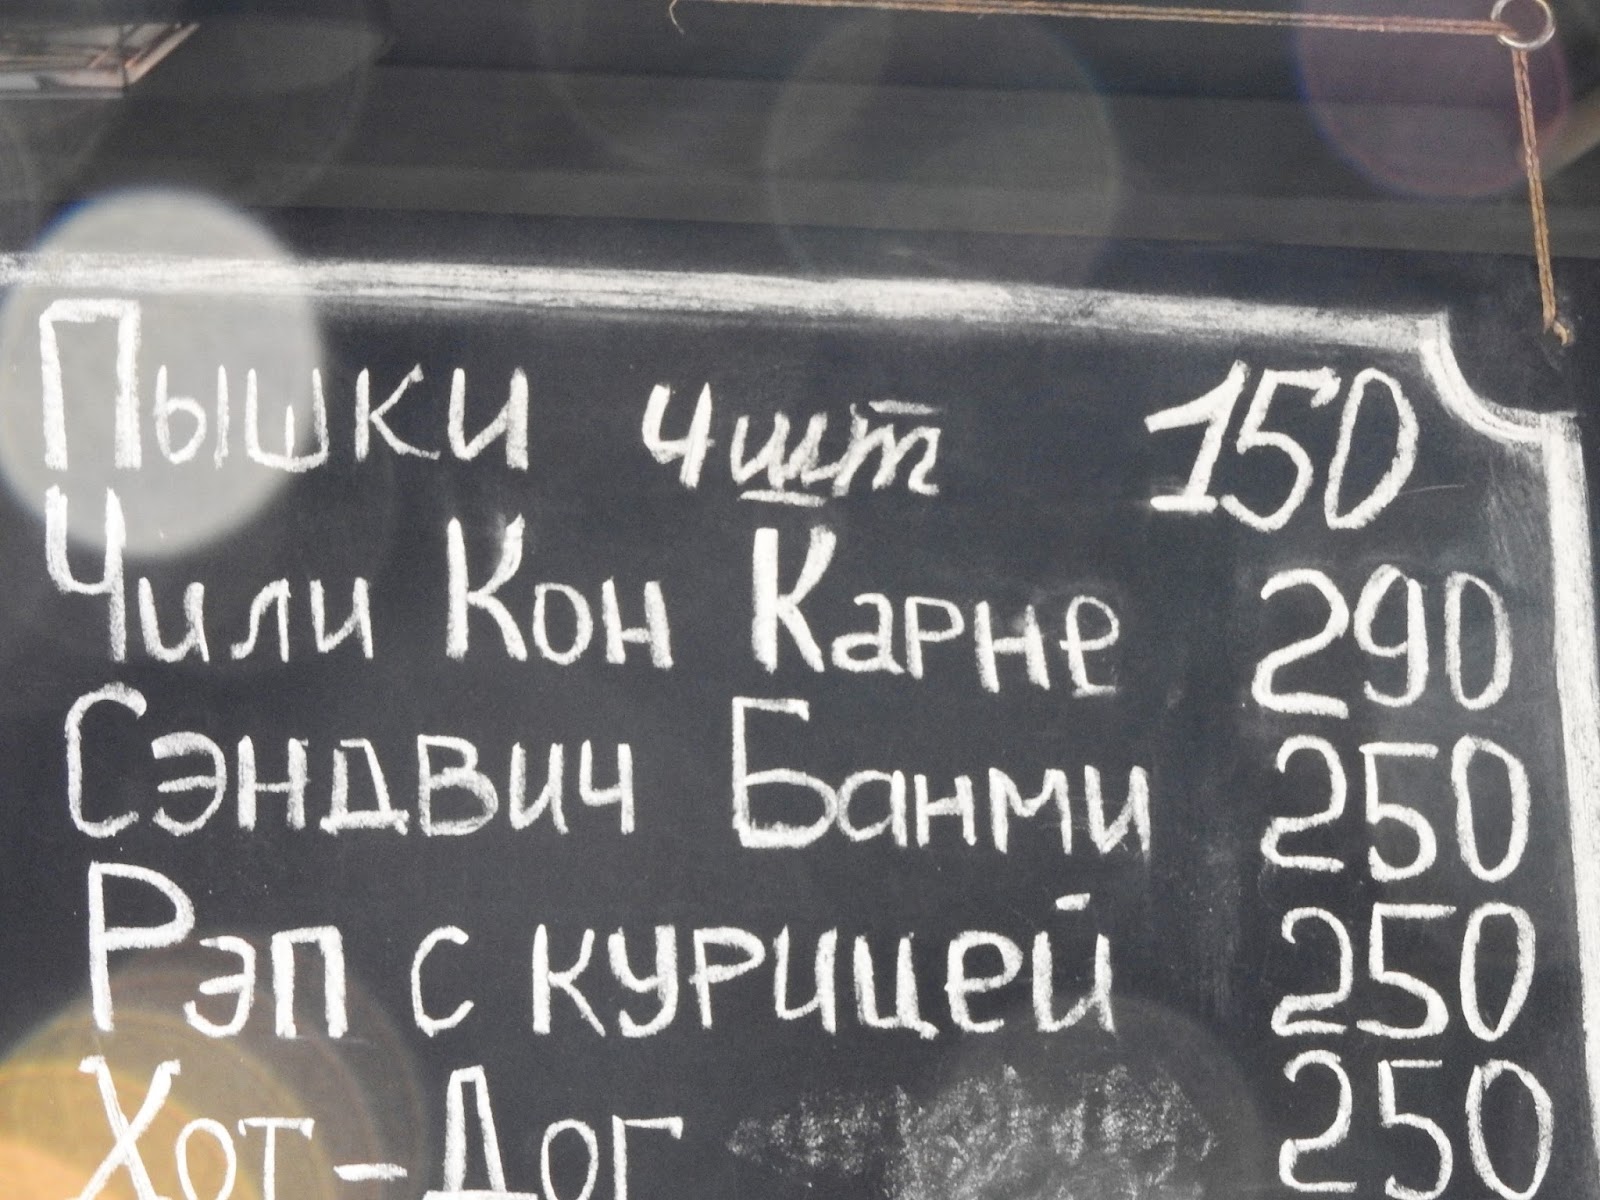 Пышки 4шт 150
Чили Кон Карне 290
Сэндвич Банми 250
Рэп с курицей 250
Хот-Дог 250